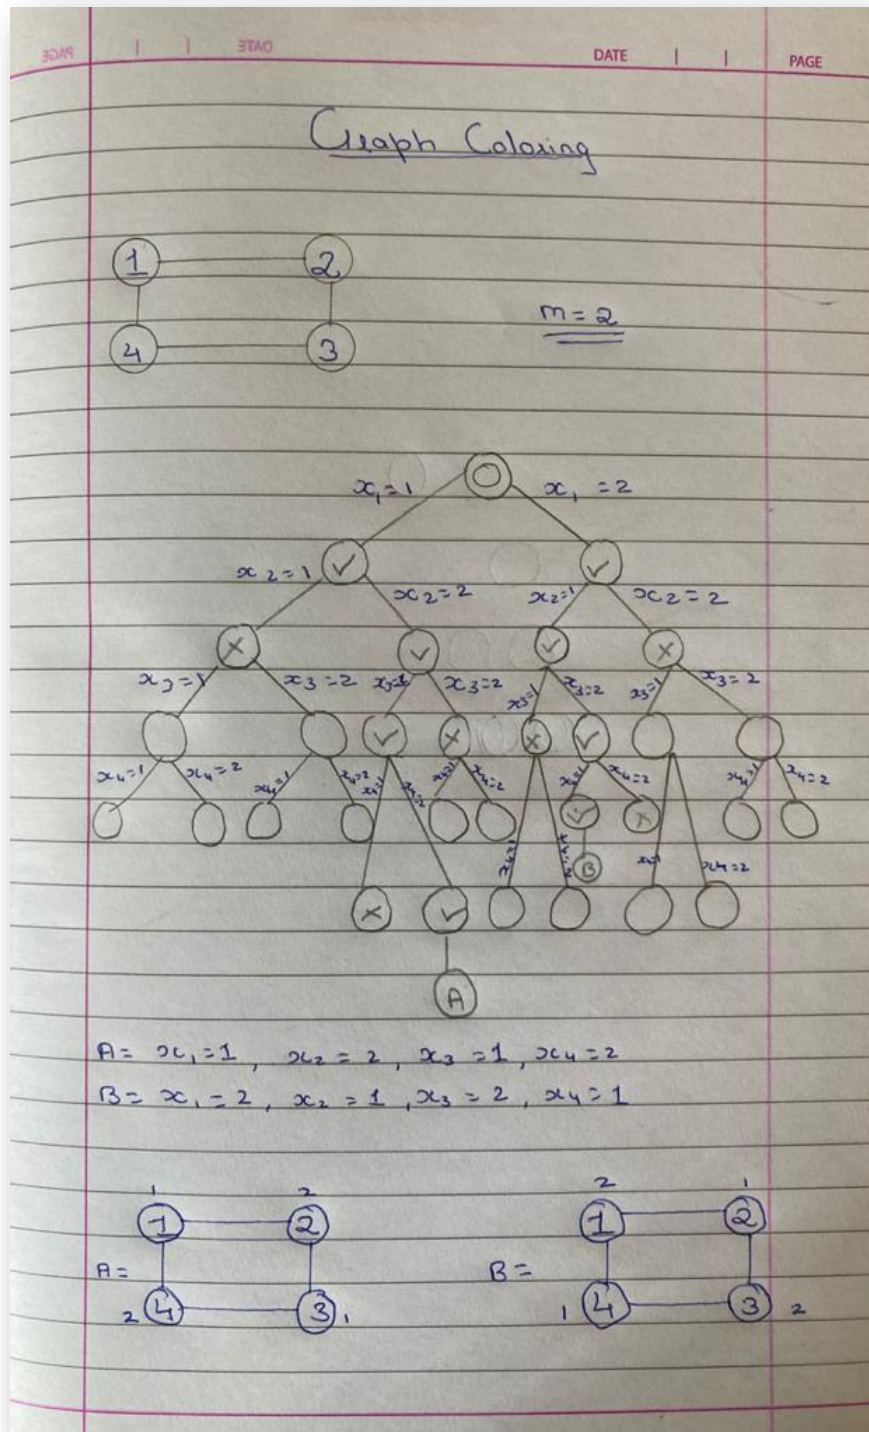 PAGE DATE DATE PAGE
Graph Coloring
1 2
m = 2
4 3
x₁=1 x₁ = 2
✓ ✓
x₂=1 x₂=2 x₂=1 x₂=2
x ✓ ✓ x
x₃=1 x₃=2 x₃=1 x₃=2 x₃=1 x₃=2 x₃=1 x₃=2
✓ x x ✓
x₄=1 x₄=2 x₄=1 x₄=2 x₄=1 x₄=2 x₄=1 x₄=2 x₄=1 x₄=2 x₄=1 x₄=2
✓ x
x₄=1 x₄=1 x₄=2
B
x ✓
A
A = x₁=1, x₂=2, x₃=1, x₄=2
B = x₁=2, x₂=1, x₃=2, x₄=1
1 2 2 1
1 2 1 2
A = B =
2 4 3 1 1 4 3 2